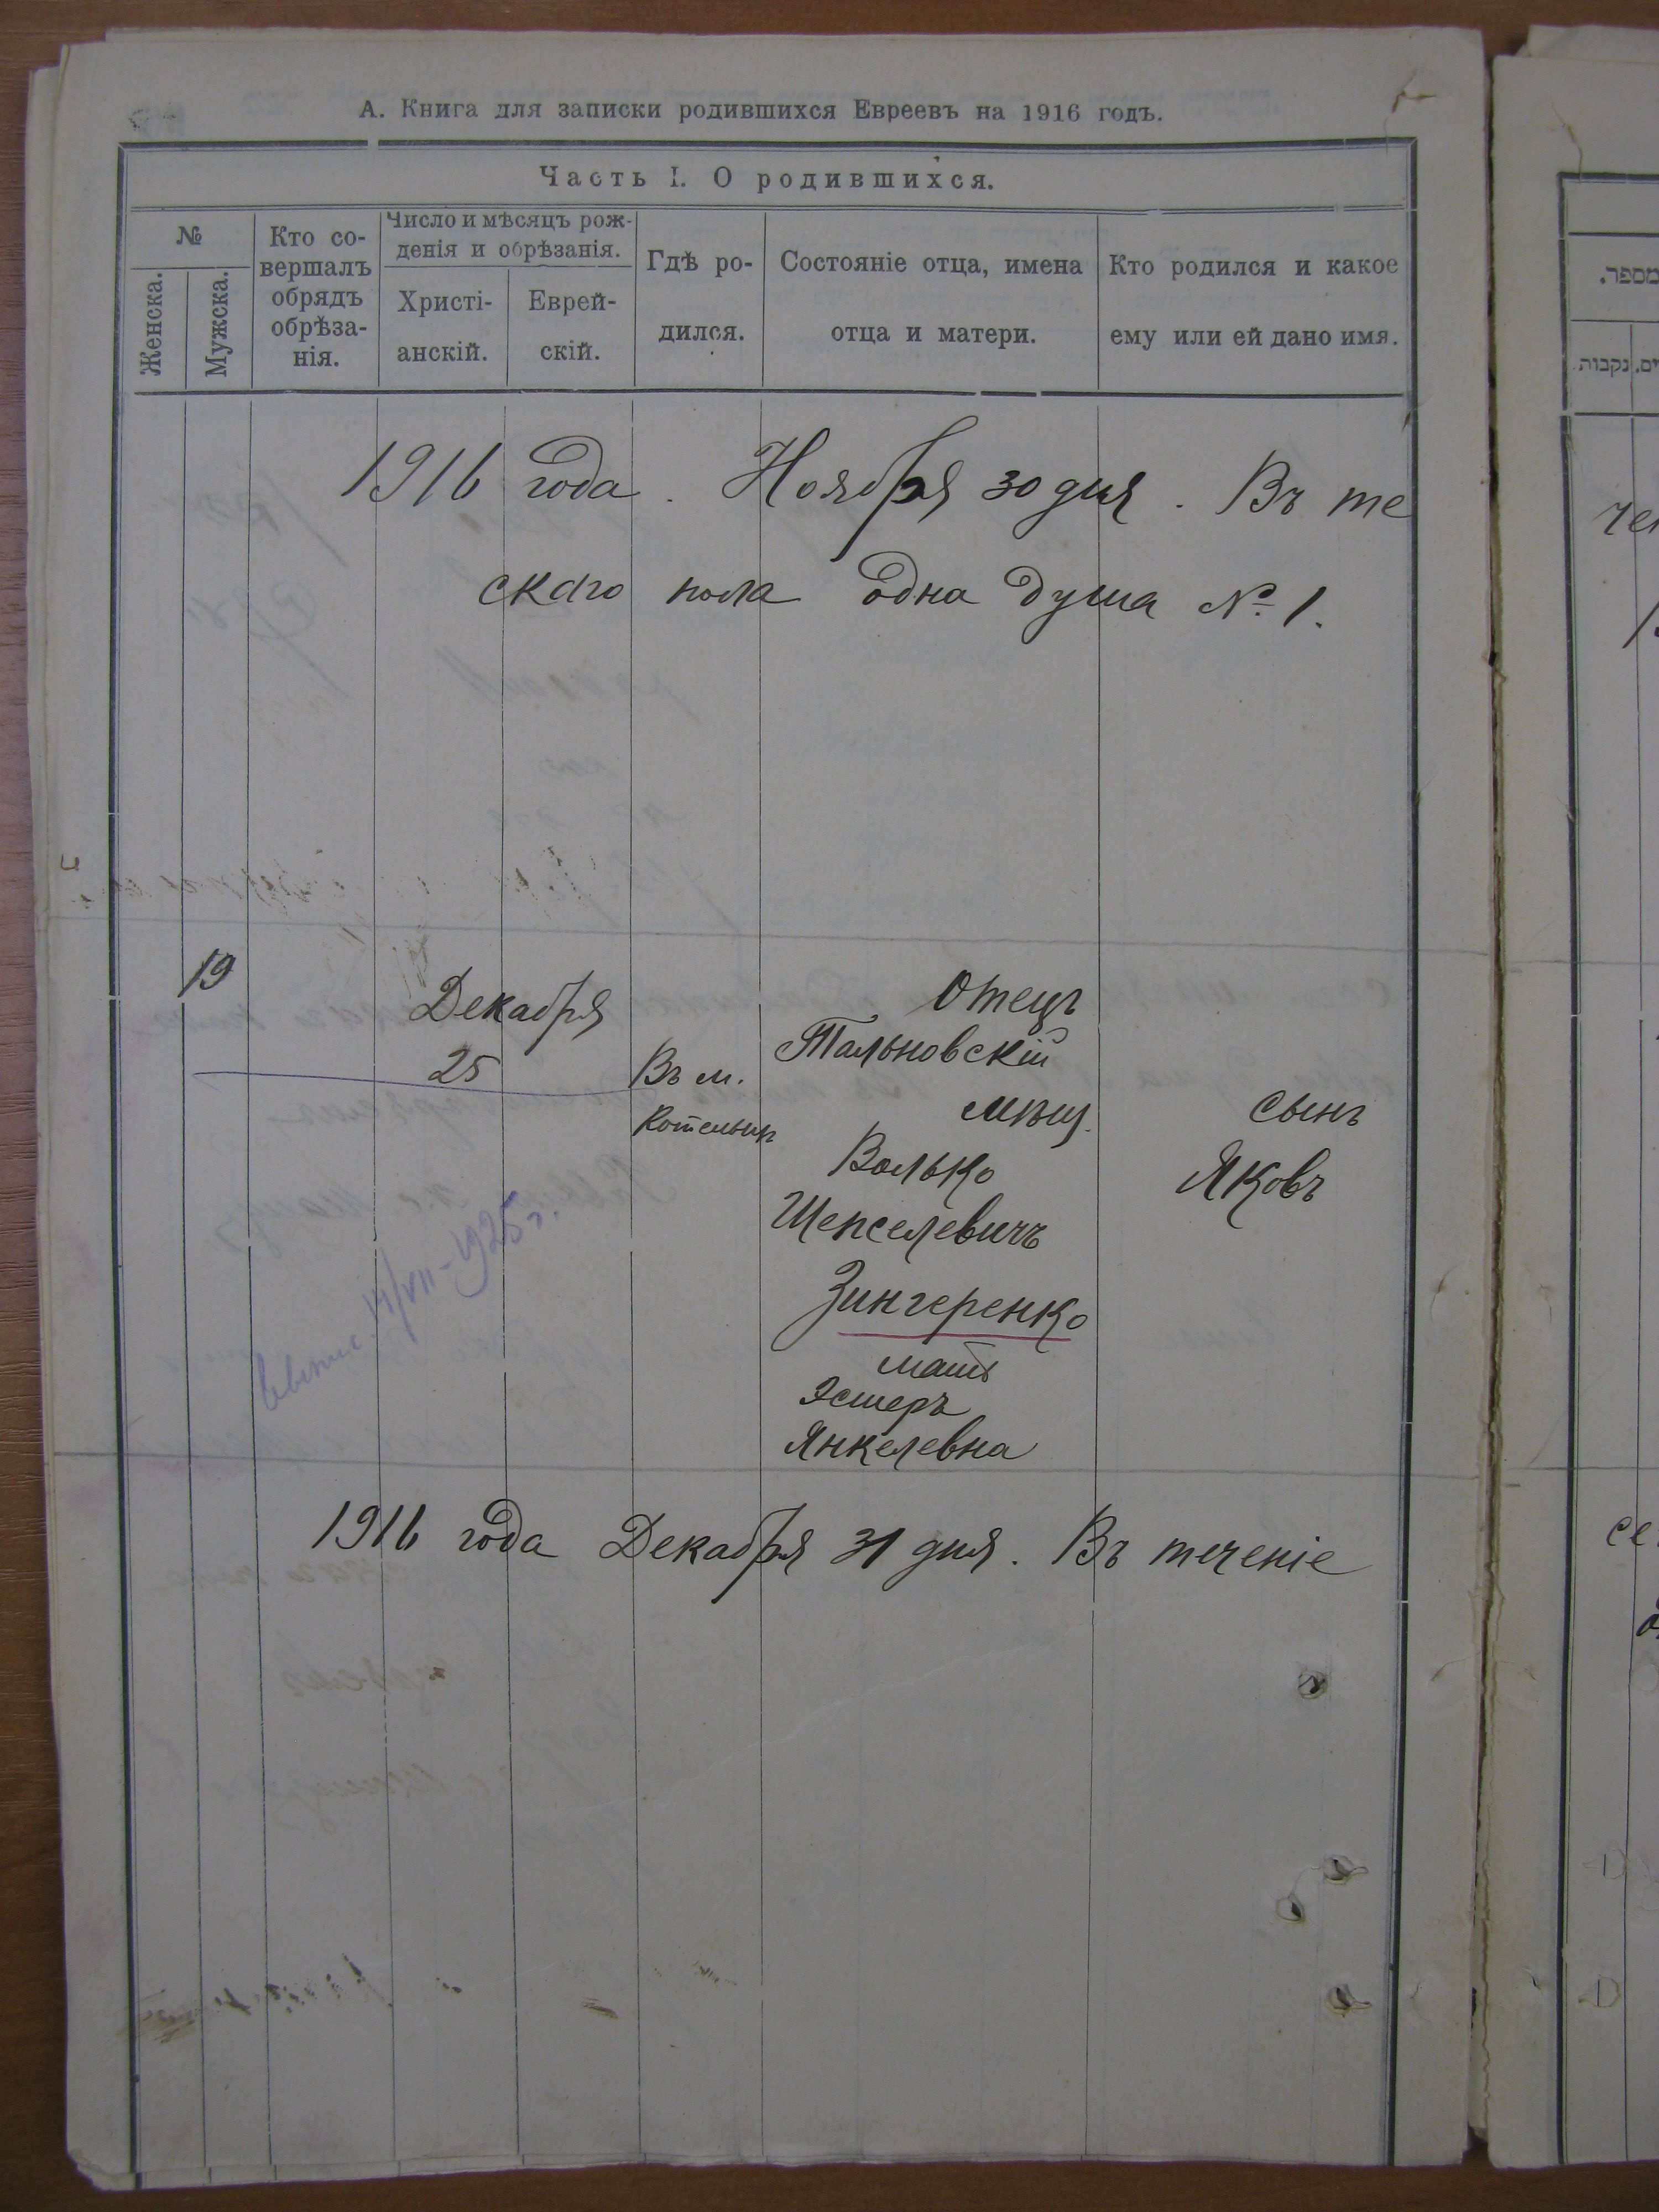 А. Книга для записки родившихся Евреевъ на 1916 годъ.
Часть I. О родившихся.
№
Женска.
Мужска.
Кто со-
вершалъ
обрядъ
обрѣза-
нія.
Число и мѣсяцъ рож-
денія и обрѣзанія.
Христі-
анскій.
Еврей-
скій.
Гдѣ ро-
дился.
Состояніе отца, имена
отца и матери.
Кто родился и какое
ему или ей дано имя.
מספר.
נקבות
1916 года. Ноября 30 дня. Въ те
скаго пола одна душа №. 1.
19
Декабря
25
Въ м.
Отецъ
Тальновскій
мѣщ.
Волько
Шепселевичъ
Зингеренко
мать
Эстеръ
Янкелевна
сынъ
Яковъ
VII-1925 г.
1916 года Декабря 31 дня. Въ теченіе